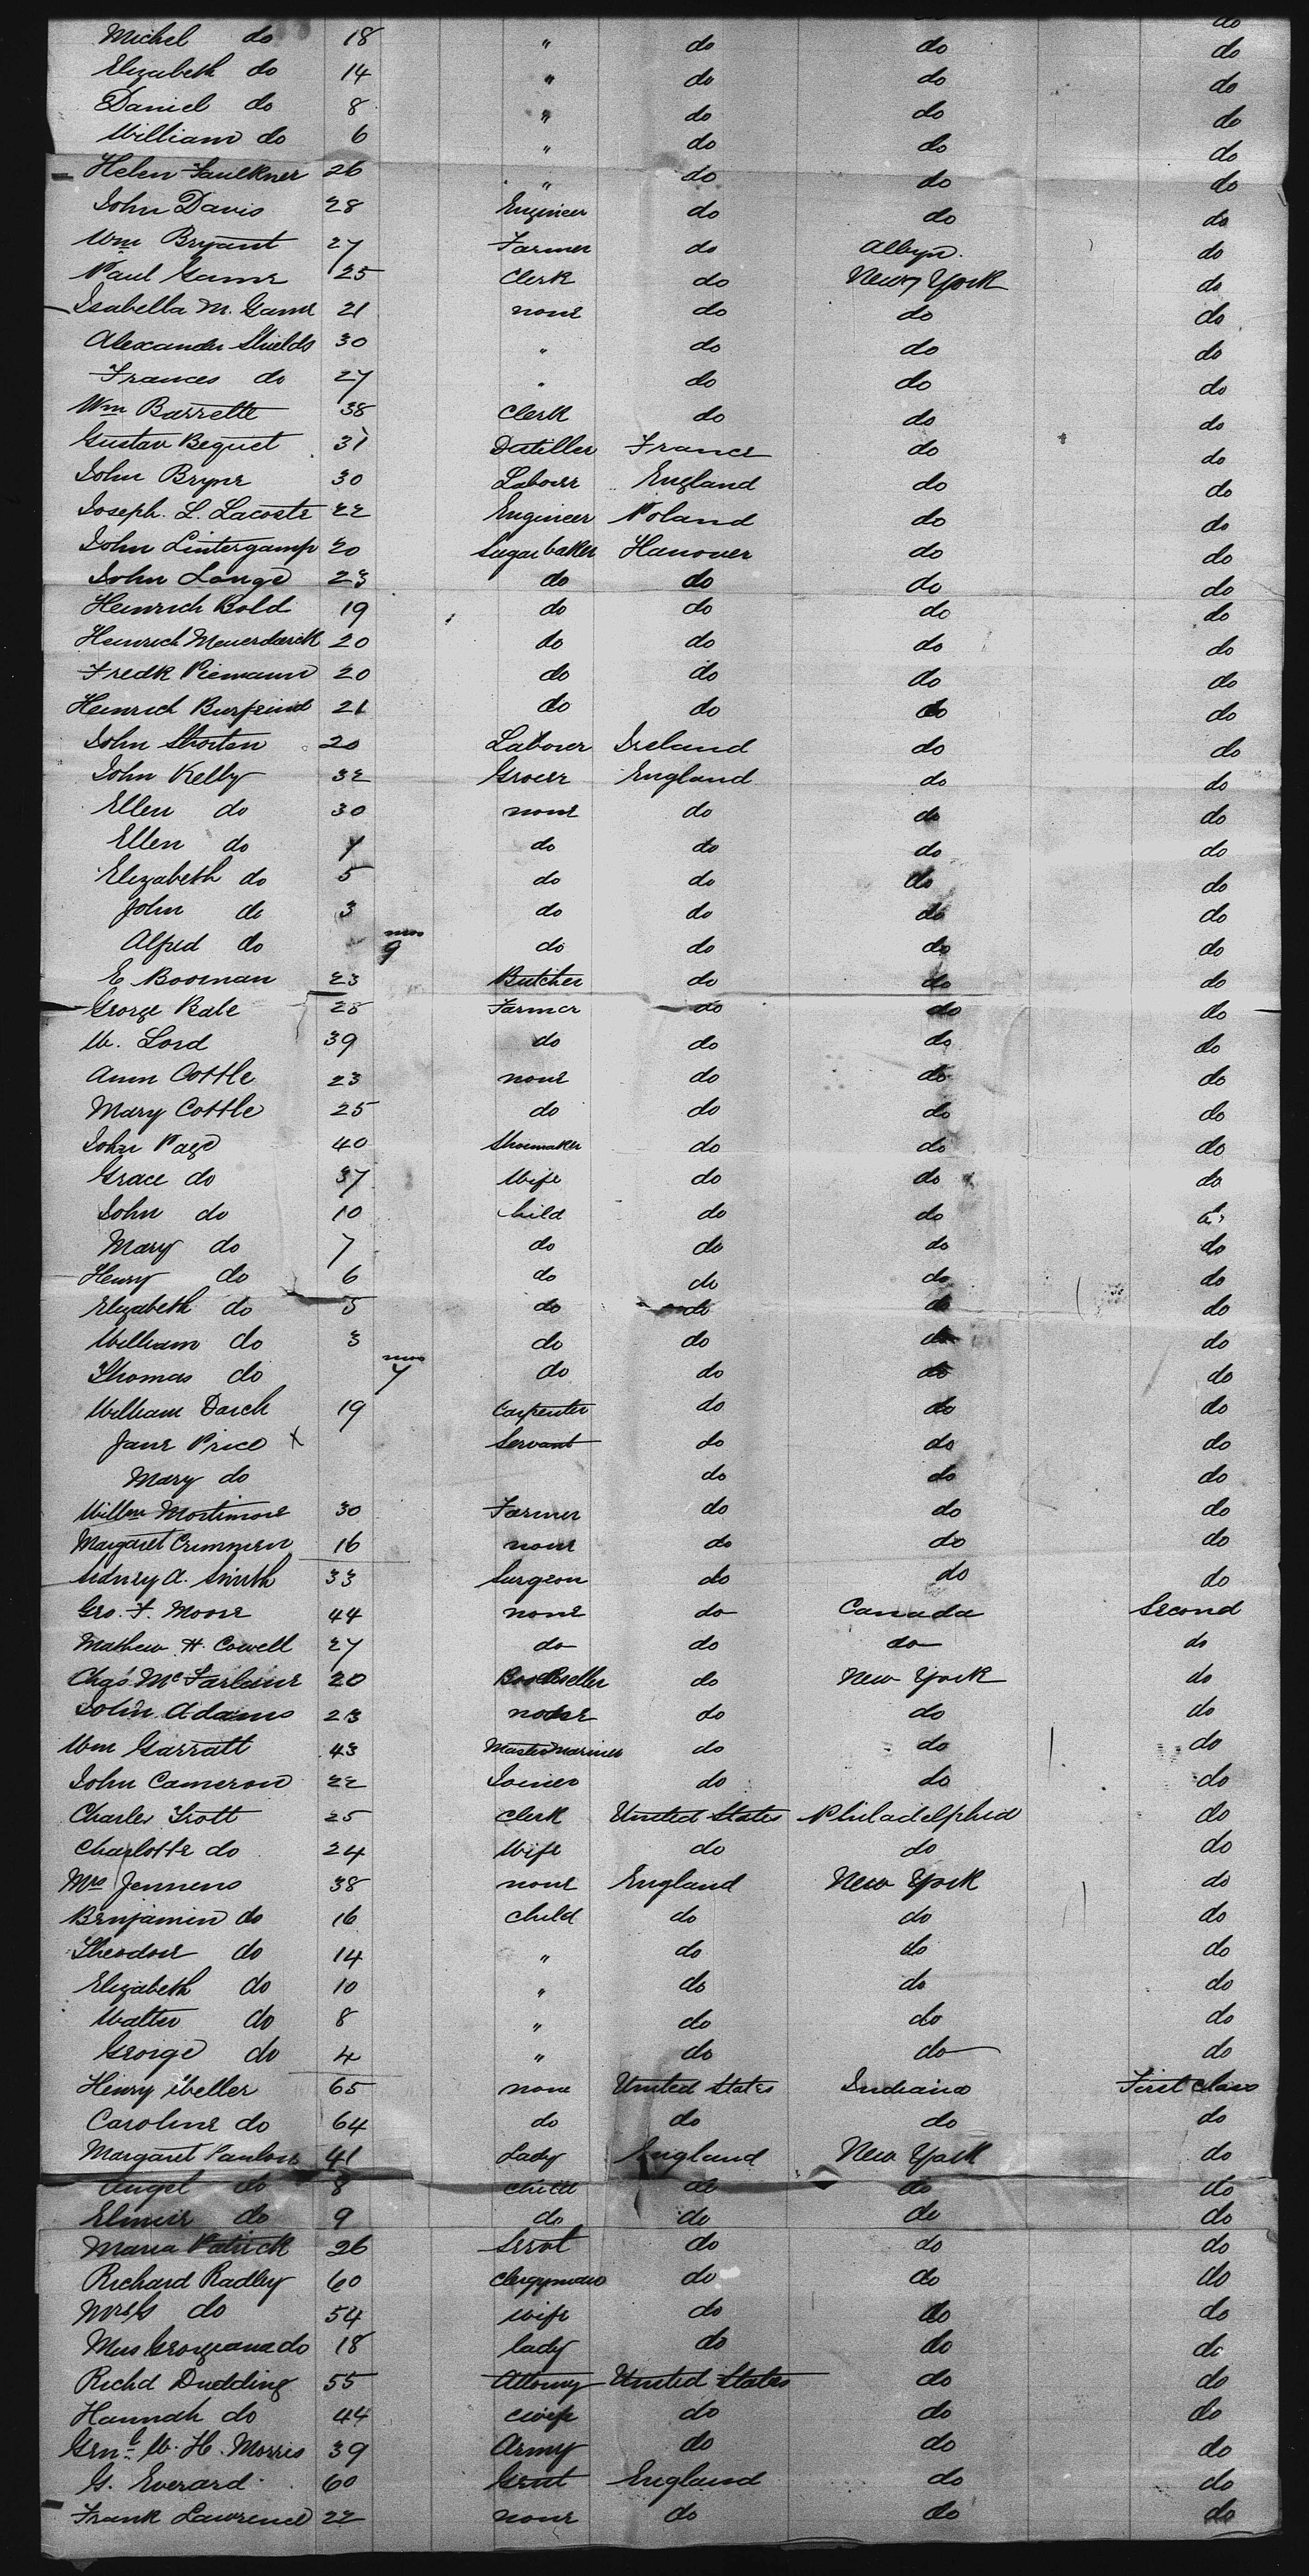 do
Michel do 18 " do do do
Elizabeth do 14 " do do do
Daniel do 8 " do do do
William do 6 " do do do
Helen Faulkner 26 " do do do
John Davis 28 Engineer do do do
Wm Bryant 27 Farmer do Albyn. do
Paul Game 25 Clerk do New York do
Isabella M. Game 21 none do do do
Alexander Shields 30 " do do do
Frances do 27 " do do do
Wm Barrette 38 Clerk do do do
Gustav Bequet 31 Distiller France do do
John Bryne 30 Labourr England do do
Joseph. L. Lacoste 22 Engineer Poland do do
John Lintergamp 20 Sugarbaker Hanover do do
John Lange 23 do do do do
Heinrich Bold 19 do do do do
Heinrich Meuerdarck 20 do do do do
Fredk Piemann 20 do do do do
Heinrich Burfeind 21 do do do do
John Shorten 20 Labourer Ireland do do
John Kelly 32 Grocer England do do
Ellen do 30 none do do do
Ellen do 7 do do do do
Elizabeth do 5 do do do do
John do 3 do do do do
Alfred do mos 9 do do do do
E Booman 23 Butcher do do do
George Bale 28 Farmer do do do
W. Lord 39 do do do do
Ann Cottle 23 none do do do
Mary Cottle 25 do do do do
John Page 40 Shoemaker do do do
Grace do 37 Wife do do do
John do 10 Child do do do
Mary do 7 do do do do
Henry do 6 do do do do
Elizabeth do 5 do do do do
William do 3 do do do do
Thomas do mos 7 do do do do
William Darch 19 Carpenter do do do
Jane Price X Servant do do do
Mary do do do do
Willm Mortimore 30 Farmer do do do
Margaret Crimmen 16 none do do do
Sidney A. Smith 33 Surgeon do do do
Geo. F. Moore 44 none do Canada Second
Mathew H. Cowell 27 do do do do
Chas McFarlane 20 Bookseller do New York do
John Adams 23 none do do do
Wm Garratt 43 Master Mariner do do do
John Cameron 22 Joiner do do do
Charles Trott 25 Clerk United States Philadelphia do
Charlotte do 24 Wife do do do
Mrs Jennens 38 none England New York do
Benjamin do 16 child do do do
Theodore do 14 " do do do
Elizabeth do 10 " do do do
Walter do 8 " do do do
George do 4 " do do do
Henry Weller 65 none United States Indiana First Class
Caroline do 64 do do do do
Margaret Paulon 41 Lady England New York do
Angel do 8 child do do do
do 9 do do do do
Maria Patrick 26 Servt do do do
Richard Radley 60 Clergyman do do do
Mrs do 54 wife do do do
Miss Georgiana do 18 lady do do do
Richd Dudding 55 Attorny United States do do
Hannah do 44 wife do do do
Genl W. H. Morris 39 Army do do do
G. Everard 60 Gent England do do
Frank Lawrence 22 none do do do